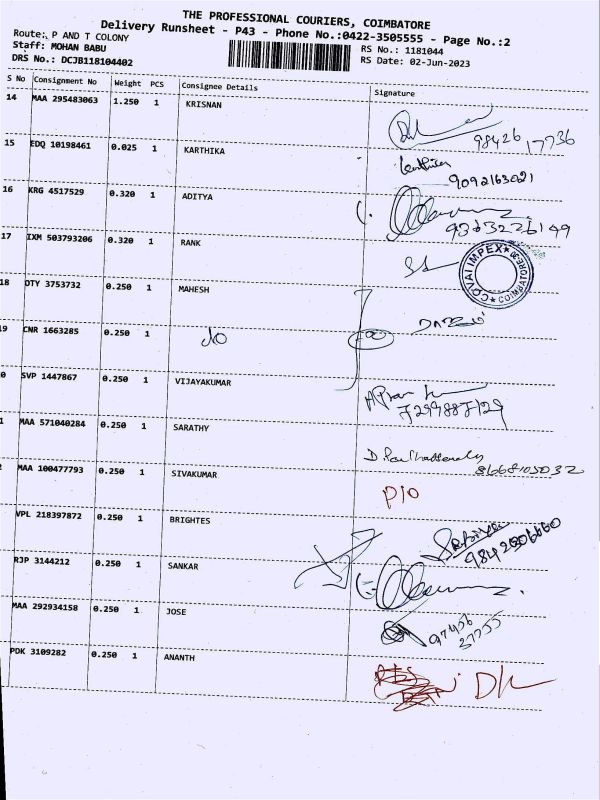 THE PROFESSIONAL COURIERS, COIMBATORE
Delivery Runsheet - P43 - Phone No.:0422-3505555 - Page No.:2
Route: P AND T COLONY
Staff: MOHAN BABU
DRS No.: DCJB118104402
RS No.: 1181044
RS Date: 02-Jun-2023
S No Consignment No Weight PCS Consignee Details Signature
14 MAA 295483063 1.250 1 KRISNAN
98426 17736
15 EDQ 10198461 0.025 1 KARTHIKA
Karthika
9092163021
16 KRG 4517529 0.320 1 ADITYA
9363226149
17 IXM 503793206 0.320 1 RANK
COVAI IMPEX COIMBATORE
18 DTY 3753732 0.250 1 MAHESH
19 CNR 1663285 0.250 1 do
0 SVP 1447867 0.250 1 VIJAYAKUMAR
7299887129
1 MAA 571040284 0.250 1 SARATHY
8668105032
2 MAA 100477793 0.250 1 SIVAKUMAR
P/O
VPL 218397872 0.250 1 BRIGHTES
9842506660
RJP 3144212 0.250 1 SANKAR
MAA 292934158 0.250 1 JOSE
97456
27755
PDK 3109282 0.250 1 ANANTH